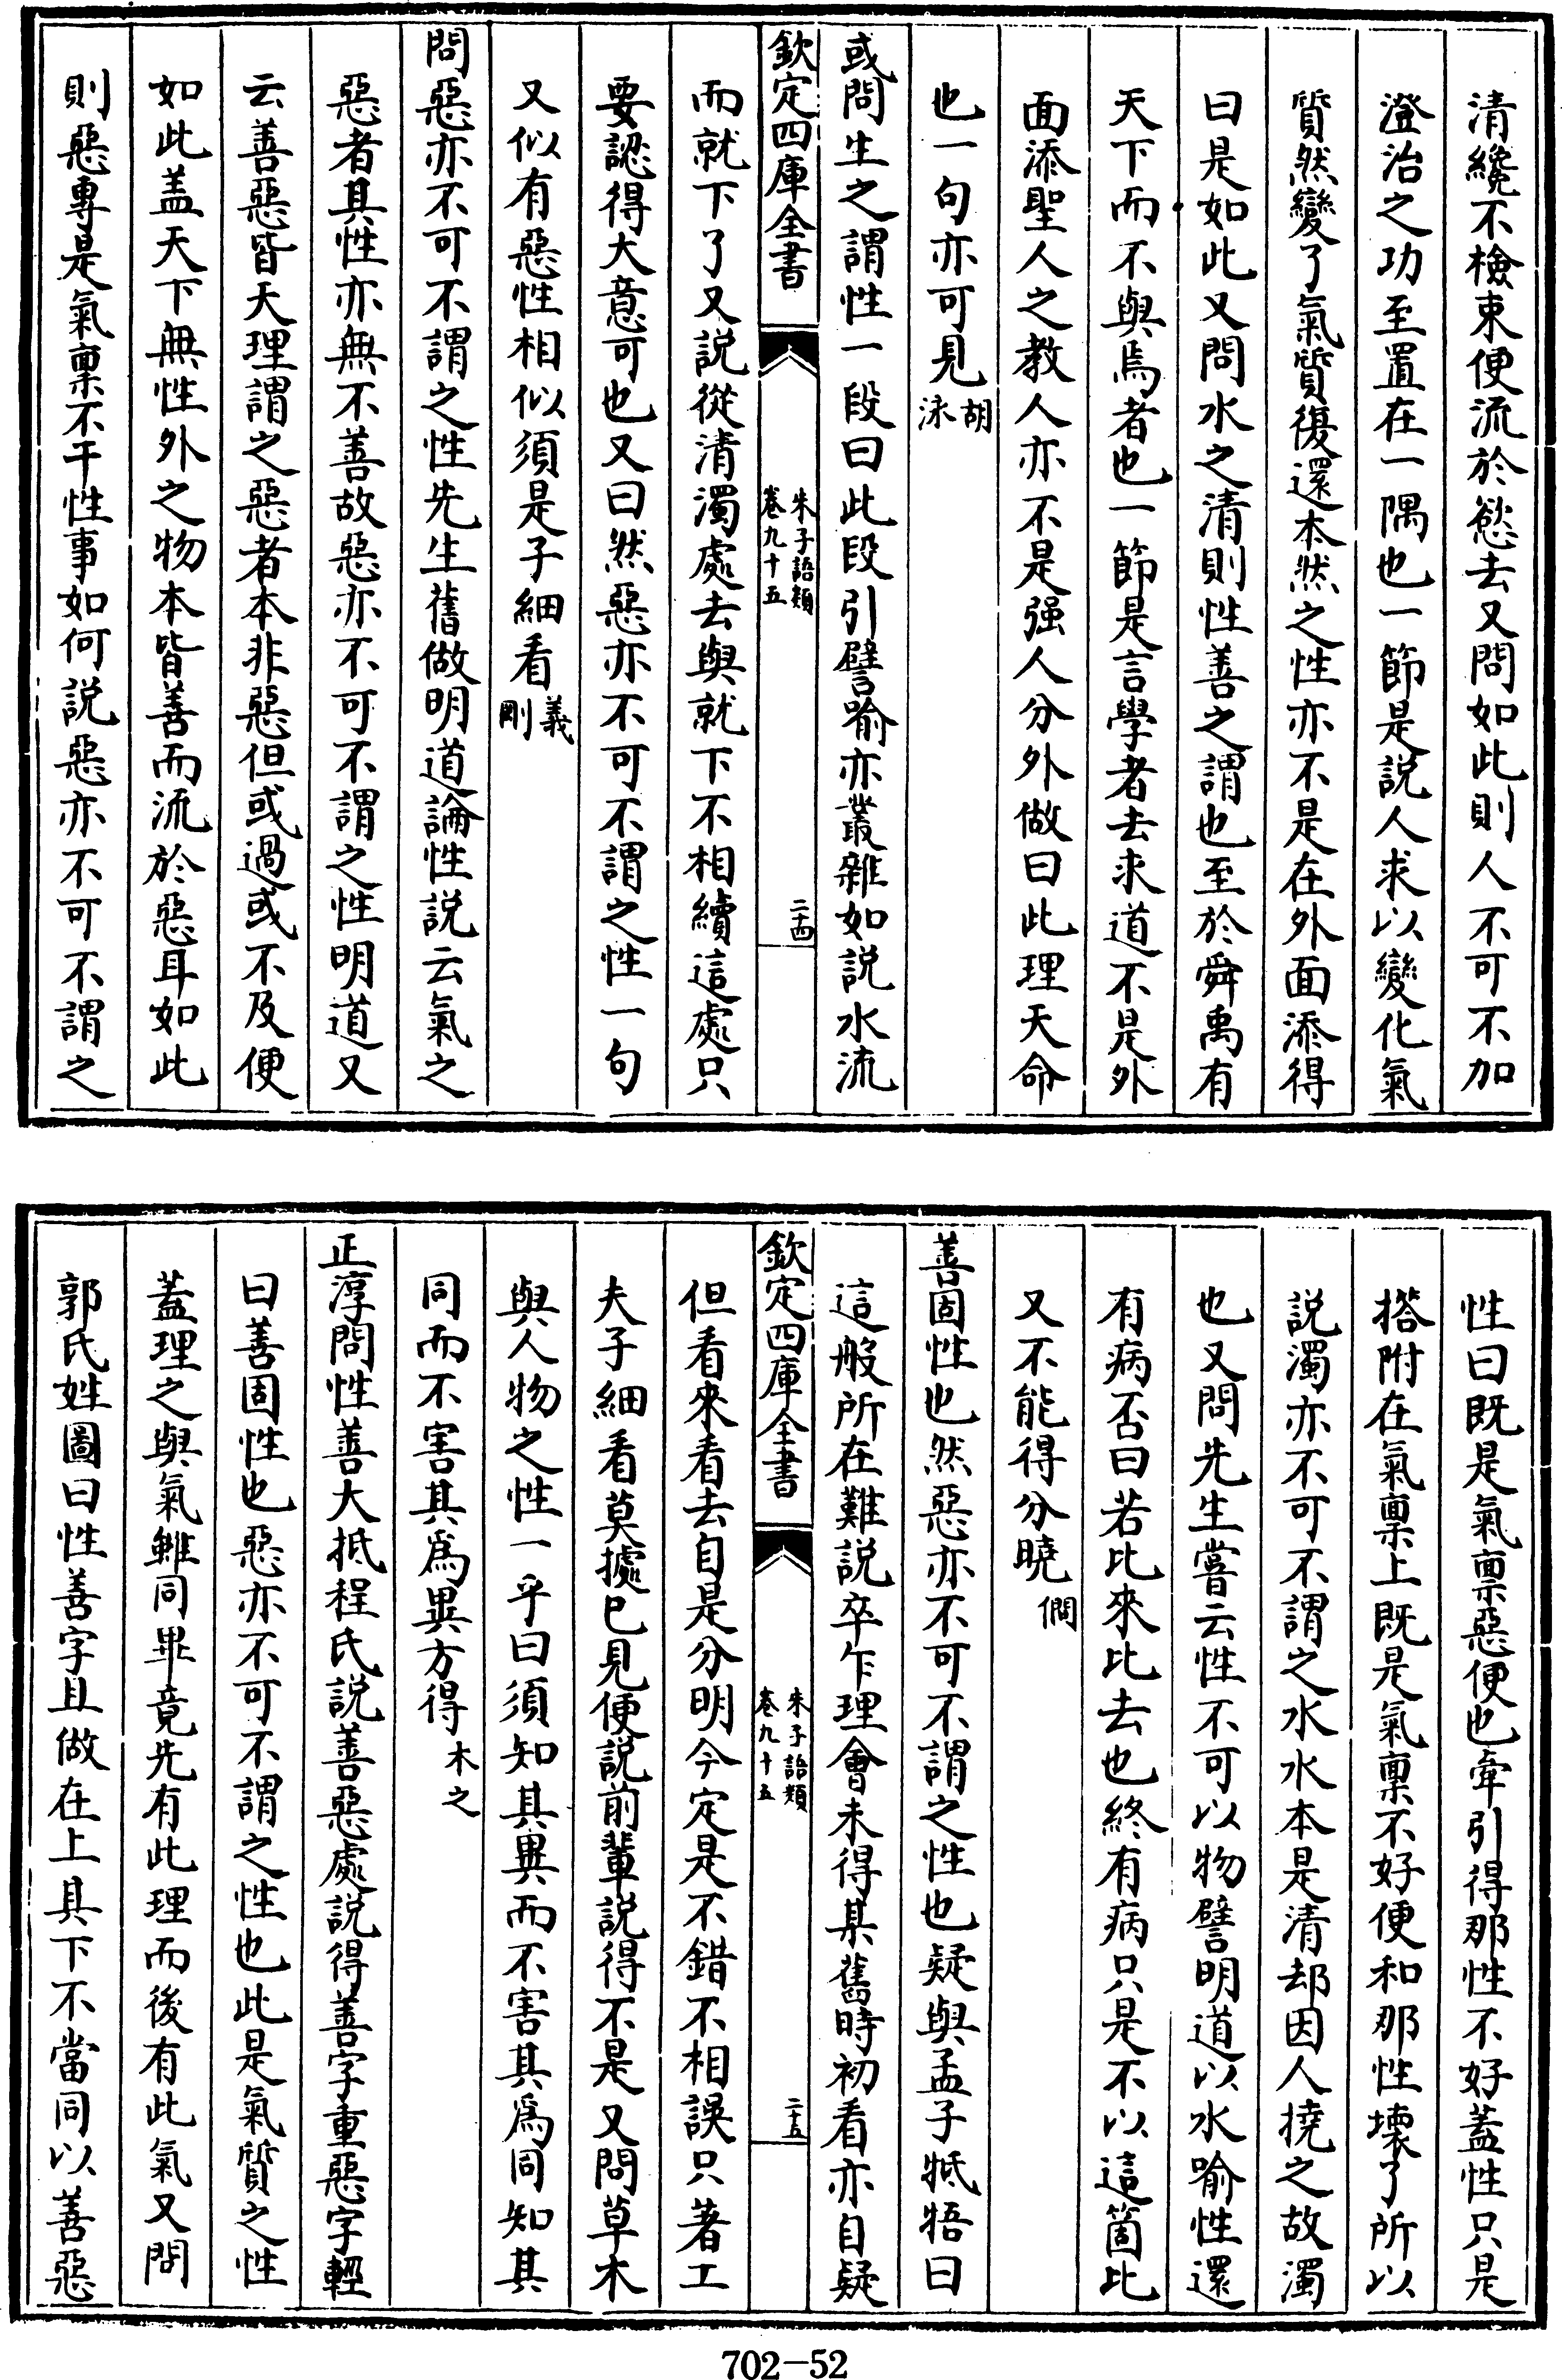 清纔不檢束便流於慾去又問如此則人不可不加
澄治之功至置在一隅也一節是説人求以變化氣
質然變了氣質復還本然之性亦不是在外面添得
曰是如此又問水之清則性善之謂也至於舜禹有
天下而不與焉者也一節是言學者去求道不是外
面添聖人之教人亦不是强人分外做曰此理天命
也一句亦可見胡泳
或問生之謂性一段曰此段引譬喻亦叢雜如説水流
欽定四庫全書 朱子語類 卷九十五 二十四
而就下了又説從清濁處去與就下不相續這處只
要認得大意可也又曰然惡亦不可不謂之性一句
又似有惡性相似須是子細看義剛
問惡亦不可不謂之性先生舊做明道論性説云氣之
惡者其性亦無不善故惡亦不可不謂之性明道又
云善惡皆天理謂之惡者本非惡但或過或不及便
如此盖天下無性外之物本皆善而流於惡耳如此
則惡專是氣稟不干性事如何説惡亦不可不謂之
性曰既是氣稟惡便也牽引得那性不好蓋性只是
搭附在氣稟上既是氣稟不好便和那性壞了所以
説濁亦不可不謂之水水本是清却因人撓之故濁
也又問先生嘗云性不可以物譬明道以水喻性還
有病否曰若比來比去也終有病只是不以這箇比
又不能得分曉僩
善固性也然惡亦不可不謂之性也疑與孟子牴牾曰
這般所在難説卒乍理會未得某舊時初看亦自疑
欽定四庫全書 朱子語類 卷九十五 二十五
但看來看去自是分明今定是不錯不相誤只著工
夫子細看莫據已見便説前輩説得不是又問草木
與人物之性一乎曰須知其異而不害其爲同知其
同而不害其爲異方得木之
正淳問性善大抵程氏説善惡處説得善字重惡字輕
曰善固性也惡亦不可不謂之性也此是氣質之性
蓋理之與氣雖同畢竟先有此理而後有此氣又問
郭氏姓圖曰性善字且做在上其下不當同以善惡
702-52